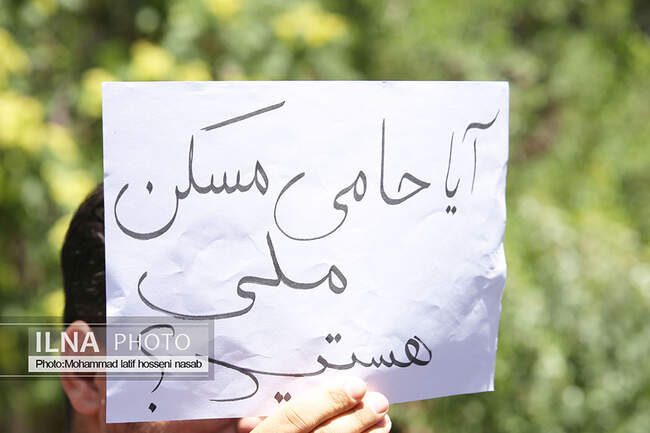 آیا حامی مسکن
ملی
هستید؟
ILNA PHOTO
Photo:Mohammad latif hosseni nasab